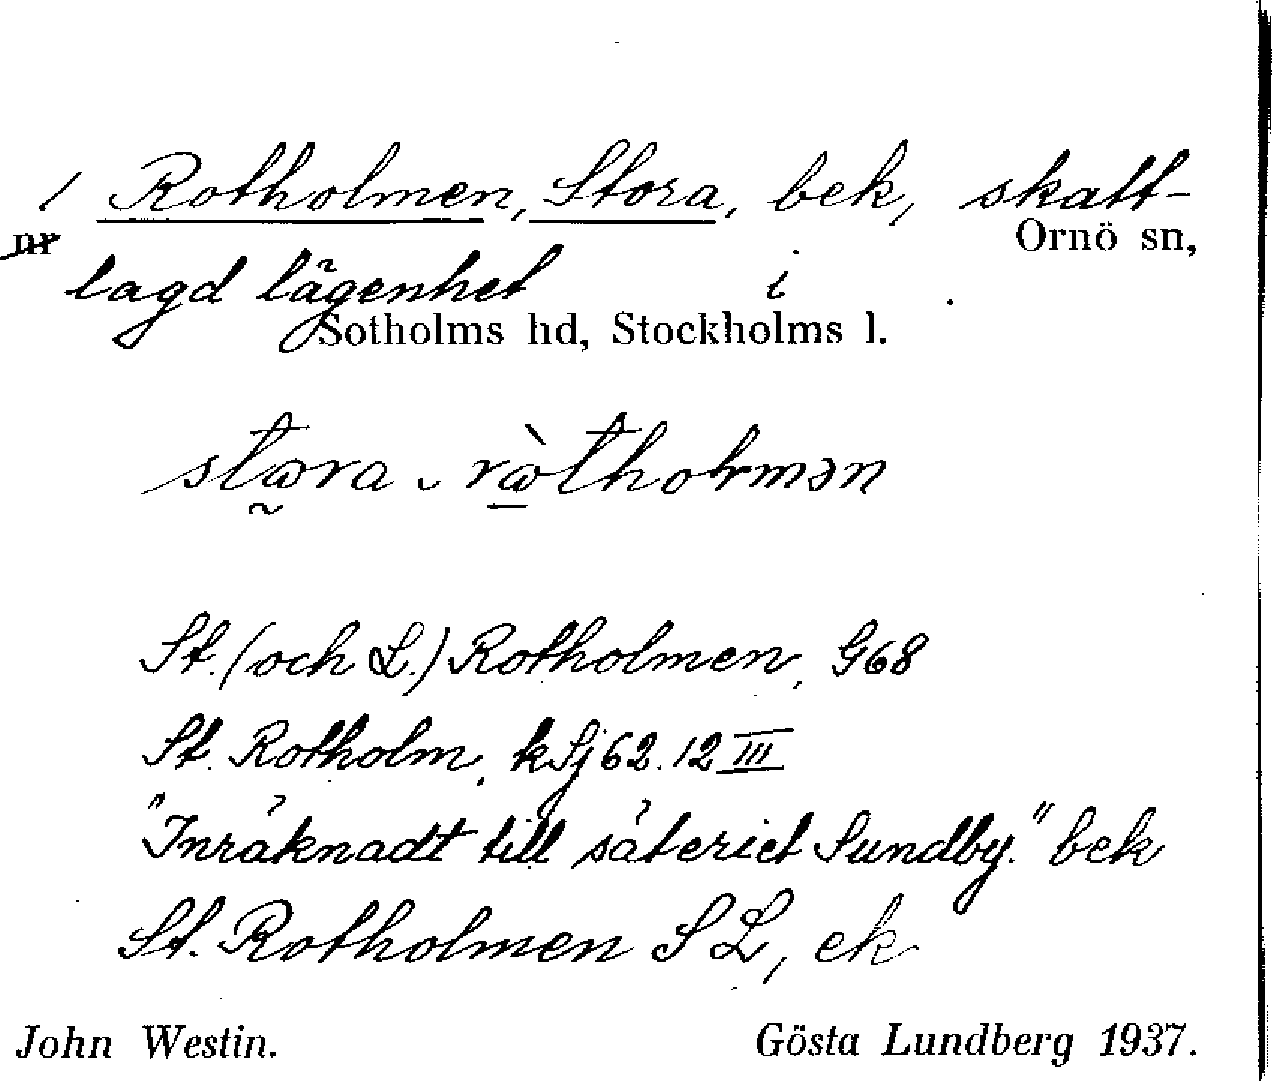 1 Rotholmen, Stora, bek, skatt-
nr Ornö sn,
lagd lägenhet i
Sotholms hd, Stockholms l.
St. (och L.) Rotholmen, G68
St. Rotholm, kSj 62.12 III
"Inräknadt till säteriet Sundby." bek
St. Rotholmen SL, ek
John Westin. Gösta Lundberg 1937.